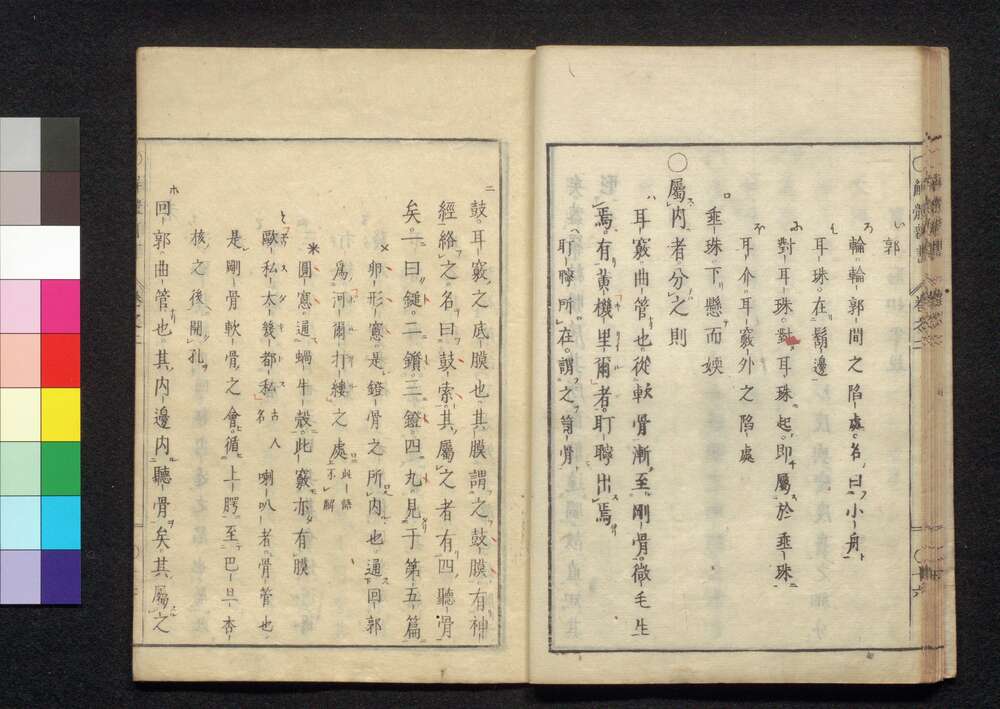 郭
輪輪郭間之陷處名曰小舟
耳珠在鬚邊
對耳珠對耳珠起即屬於垂珠
耳介耳竅外之陷處
垂珠下懸而㛐
○屬內者分之則
耳竅曲管也從軟骨漸至剛骨微毛生
焉有黃機里爾者耵聹出焉
耵聹所在謂之篩骨
鼓耳竅之底膜也其膜謂之鼓膜有神
經絡之名曰鼓索其屬之者有四聽骨
矣一曰鎚二鑽三鐙四九見于第五篇
卵形窻是鐙骨之所內也通回郭
為河爾打縷之處與語上不解
圓窻通蝸牛殼此竅亦有膜
歐私太幾都私古人名喇叭者骨管也
是剛骨軟骨之會循上腭至巴旦杏
核之後開孔
回郭曲管也其內邊內聽骨矣其屬之